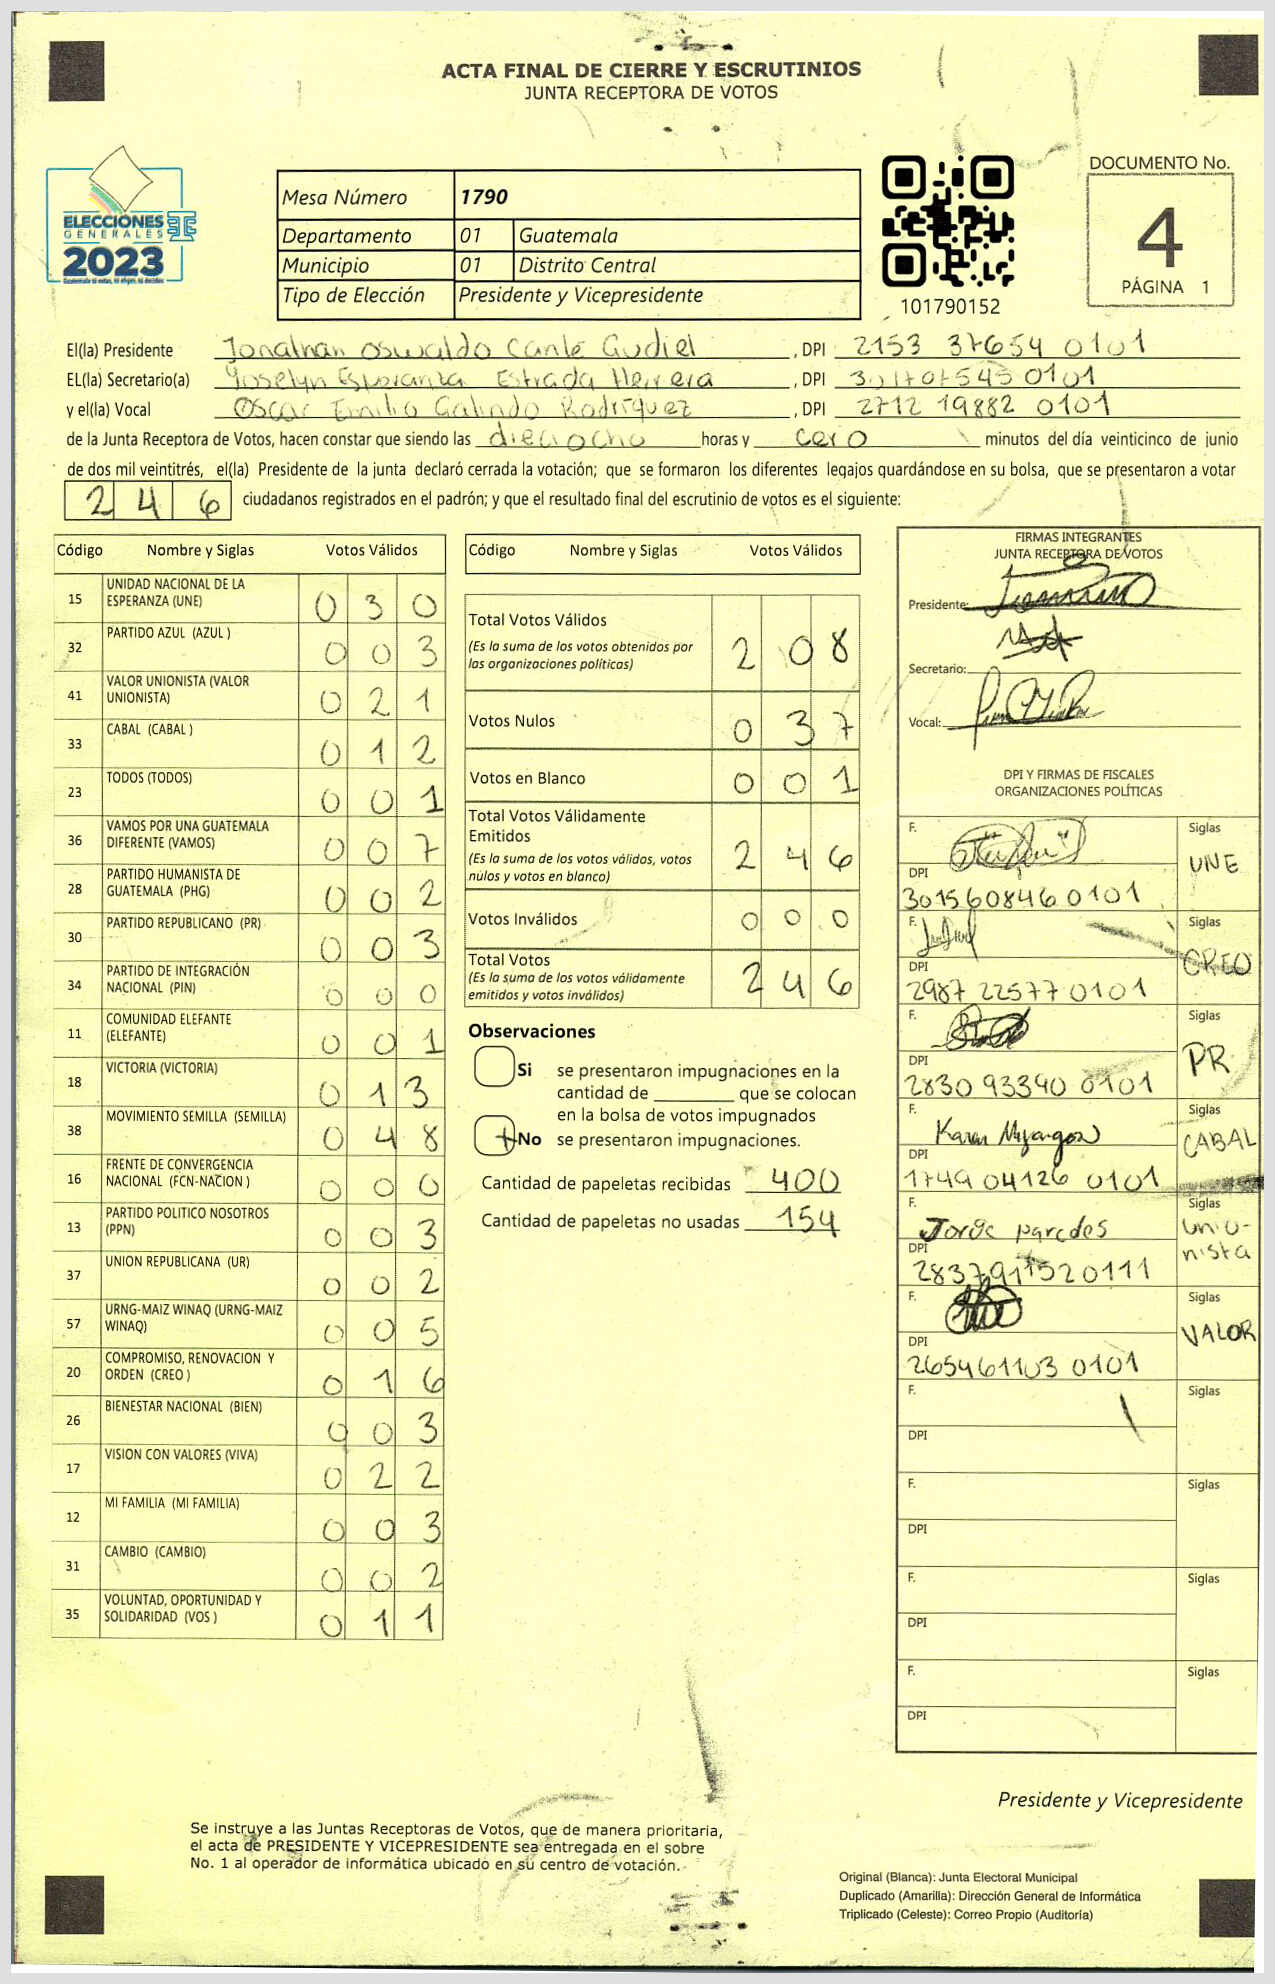 ACTA FINAL DE CIERRE Y ESCRUTINIOS
JUNTA RECEPTORA DE VOTOS
ELECCIONES
GENERALES
2023
Mesa Número 1790
Departamento 01 Guatemala
Municipio 01 Distrito Central
Tipo de Elección Presidente y Vicepresidente
101790152
DOCUMENTO No.
4
PÁGINA 1
El(la) Presidente Jonathan Oswaldo Canté Gudiel , DPI 2153 37654 0101
EL(la) Secretario(a) Yoselyn Esperanza Estrada Herrera , DPI 301707545 0101
y el(la) Vocal Oscar Emilio Galindo Rodríguez , DPI 2712 19882 0101
de la Junta Receptora de Votos, hacen constar que siendo las dieciocho horas y cero minutos del día veinticinco de junio
de dos mil veintitrés, el(la) Presidente de la junta declaró cerrada la votación; que se formaron los diferentes legajos guardándose en su bolsa, que se presentaron a votar
246 ciudadanos registrados en el padrón; y que el resultado final del escrutinio de votos es el siguiente:
Código Nombre y Siglas Votos Válidos
15 UNIDAD NACIONAL DE LA ESPERANZA (UNE) 030
32 PARTIDO AZUL (AZUL ) 003
41 VALOR UNIONISTA (VALOR UNIONISTA) 021
33 CABAL (CABAL ) 012
23 TODOS (TODOS) 001
36 VAMOS POR UNA GUATEMALA DIFERENTE (VAMOS) 007
28 PARTIDO HUMANISTA DE GUATEMALA (PHG) 002
30 PARTIDO REPUBLICANO (PR) 003
34 PARTIDO DE INTEGRACIÓN NACIONAL (PIN) 000
11 COMUNIDAD ELEFANTE (ELEFANTE) 001
18 VICTORIA (VICTORIA) 013
38 MOVIMIENTO SEMILLA (SEMILLA) 048
16 FRENTE DE CONVERGENCIA NACIONAL (FCN-NACION ) 000
13 PARTIDO POLITICO NOSOTROS (PPN) 003
37 UNION REPUBLICANA (UR) 002
57 URNG-MAIZ WINAQ (URNG-MAIZ WINAQ) 005
20 COMPROMISO, RENOVACION Y ORDEN (CREO ) 016
26 BIENESTAR NACIONAL (BIEN) 003
17 VISION CON VALORES (VIVA) 022
12 MI FAMILIA (MI FAMILIA) 003
31 CAMBIO (CAMBIO) 002
35 VOLUNTAD, OPORTUNIDAD Y SOLIDARIDAD (VOS ) 011
Código Nombre y Siglas Votos Válidos
Total Votos Válidos 208
(Es la suma de los votos obtenidos por
las organizaciones políticas)
Votos Nulos 037
Votos en Blanco 001
Total Votos Válidamente
Emitidos 246
(Es la suma de los votos válidos, votos
nulos y votos en blanco)
Votos Inválidos 000
Total Votos 246
(Es la suma de los votos válidamente
emitidos y votos inválidos)
Observaciones
Si se presentaron impugnaciones en la
cantidad de ________ que se colocan
en la bolsa de votos impugnados
No se presentaron impugnaciones.
Cantidad de papeletas recibidas 400
Cantidad de papeletas no usadas 154
FIRMAS INTEGRANTES
JUNTA RECEPTORA DE VOTOS
Presidente:
Secretario:
Vocal:
DPI Y FIRMAS DE FISCALES
ORGANIZACIONES POLÍTICAS
F. Siglas UNE
DPI 301560846 0101
F. Siglas CREO
DPI 2987 22577 0101
F. Siglas PR
DPI 2830 93390 0101
F. Karen Mijangos Siglas CABAL
DPI 1749 04126 0101
F. Jorge paredes Siglas Unionista
DPI 2837911520111
F. Siglas VALOR
DPI 265461103 0101
F. Siglas
DPI
F. Siglas
DPI
F. Siglas
DPI
F. Siglas
DPI
Presidente y Vicepresidente
Se instruye a las Juntas Receptoras de Votos, que de manera prioritaria,
el acta de PRESIDENTE Y VICEPRESIDENTE sea entregada en el sobre
No. 1 al operador de informática ubicado en su centro de votación.
Original (Blanca): Junta Electoral Municipal
Duplicado (Amarilla): Dirección General de Informática
Triplicado (Celeste): Correo Propio (Auditoría)